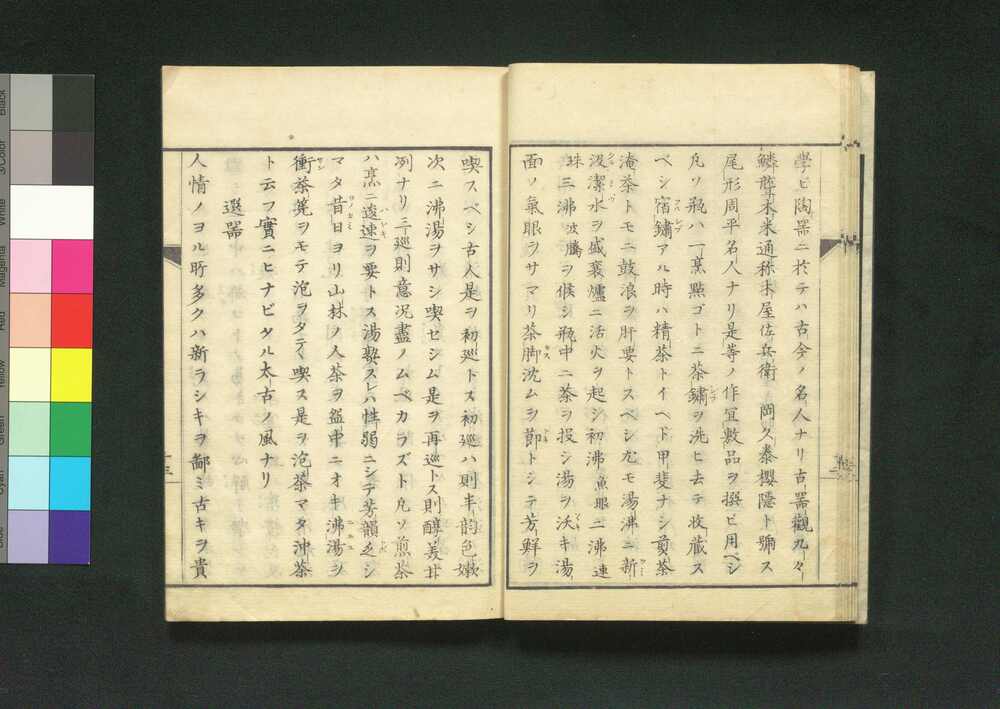 學ビ陶器ニ於テハ古今ノ名人ナリ古器觀九々
鱗尊木米通称木屋佐兵衛 岡久泰櫻隠ト號ス
尾形周平名人ナリ是等ノ作冝數品ヲ撰ビ用ベシ
凡ソ瓶ハ一烹點ゴトニ茶鏽ヲ洗ヒ去テ收藏ス
ベシ宿鏽アル時ハ精茶トイヘド甲斐ナシ煎茶
淹茶トモニ鼓浪ヲ肝要トスベシ尤モ湯沸ニ新
汲潔水ヲ盛褒爐ニ活火ヲ起シ初沸魚眼二沸連
珠三沸波騰ヲ候シ瓶中ニ茶ヲ投シ湯ヲ沃キ湯
面ノ氣眼ヲサマリ茶脚沈ムヲ節トシテ芳鮮ヲ
喫スベシ古人是ヲ初廵トス初廵ハ則半韵色嫩
次ニ沸湯ヲサシ喫セシム是ヲ再巡トス則醇美甘
冽ナリ三廵則意况盡ノムベカラズト凡ソ煎茶
ハ烹ニ逡速ヲ要トス湯熟スレハ性弱ニシテ芳韻乏シ
マタ昔日ヨリ山林ノ人茶ヲ盌中ニオキ沸湯ヲ
衝茶筅ヲモテ泡ヲタテ喫ス是ヲ泡茶マタ沖茶
ト云フ實ニヒナビタル太古ノ風ナリ
選器
人情ノヨル所多クハ新ラシキヲ鄙ミ古キヲ貴
十三
Black
3/Color
White
Magenta
Red
Yellow
Green
Cyan
Blue